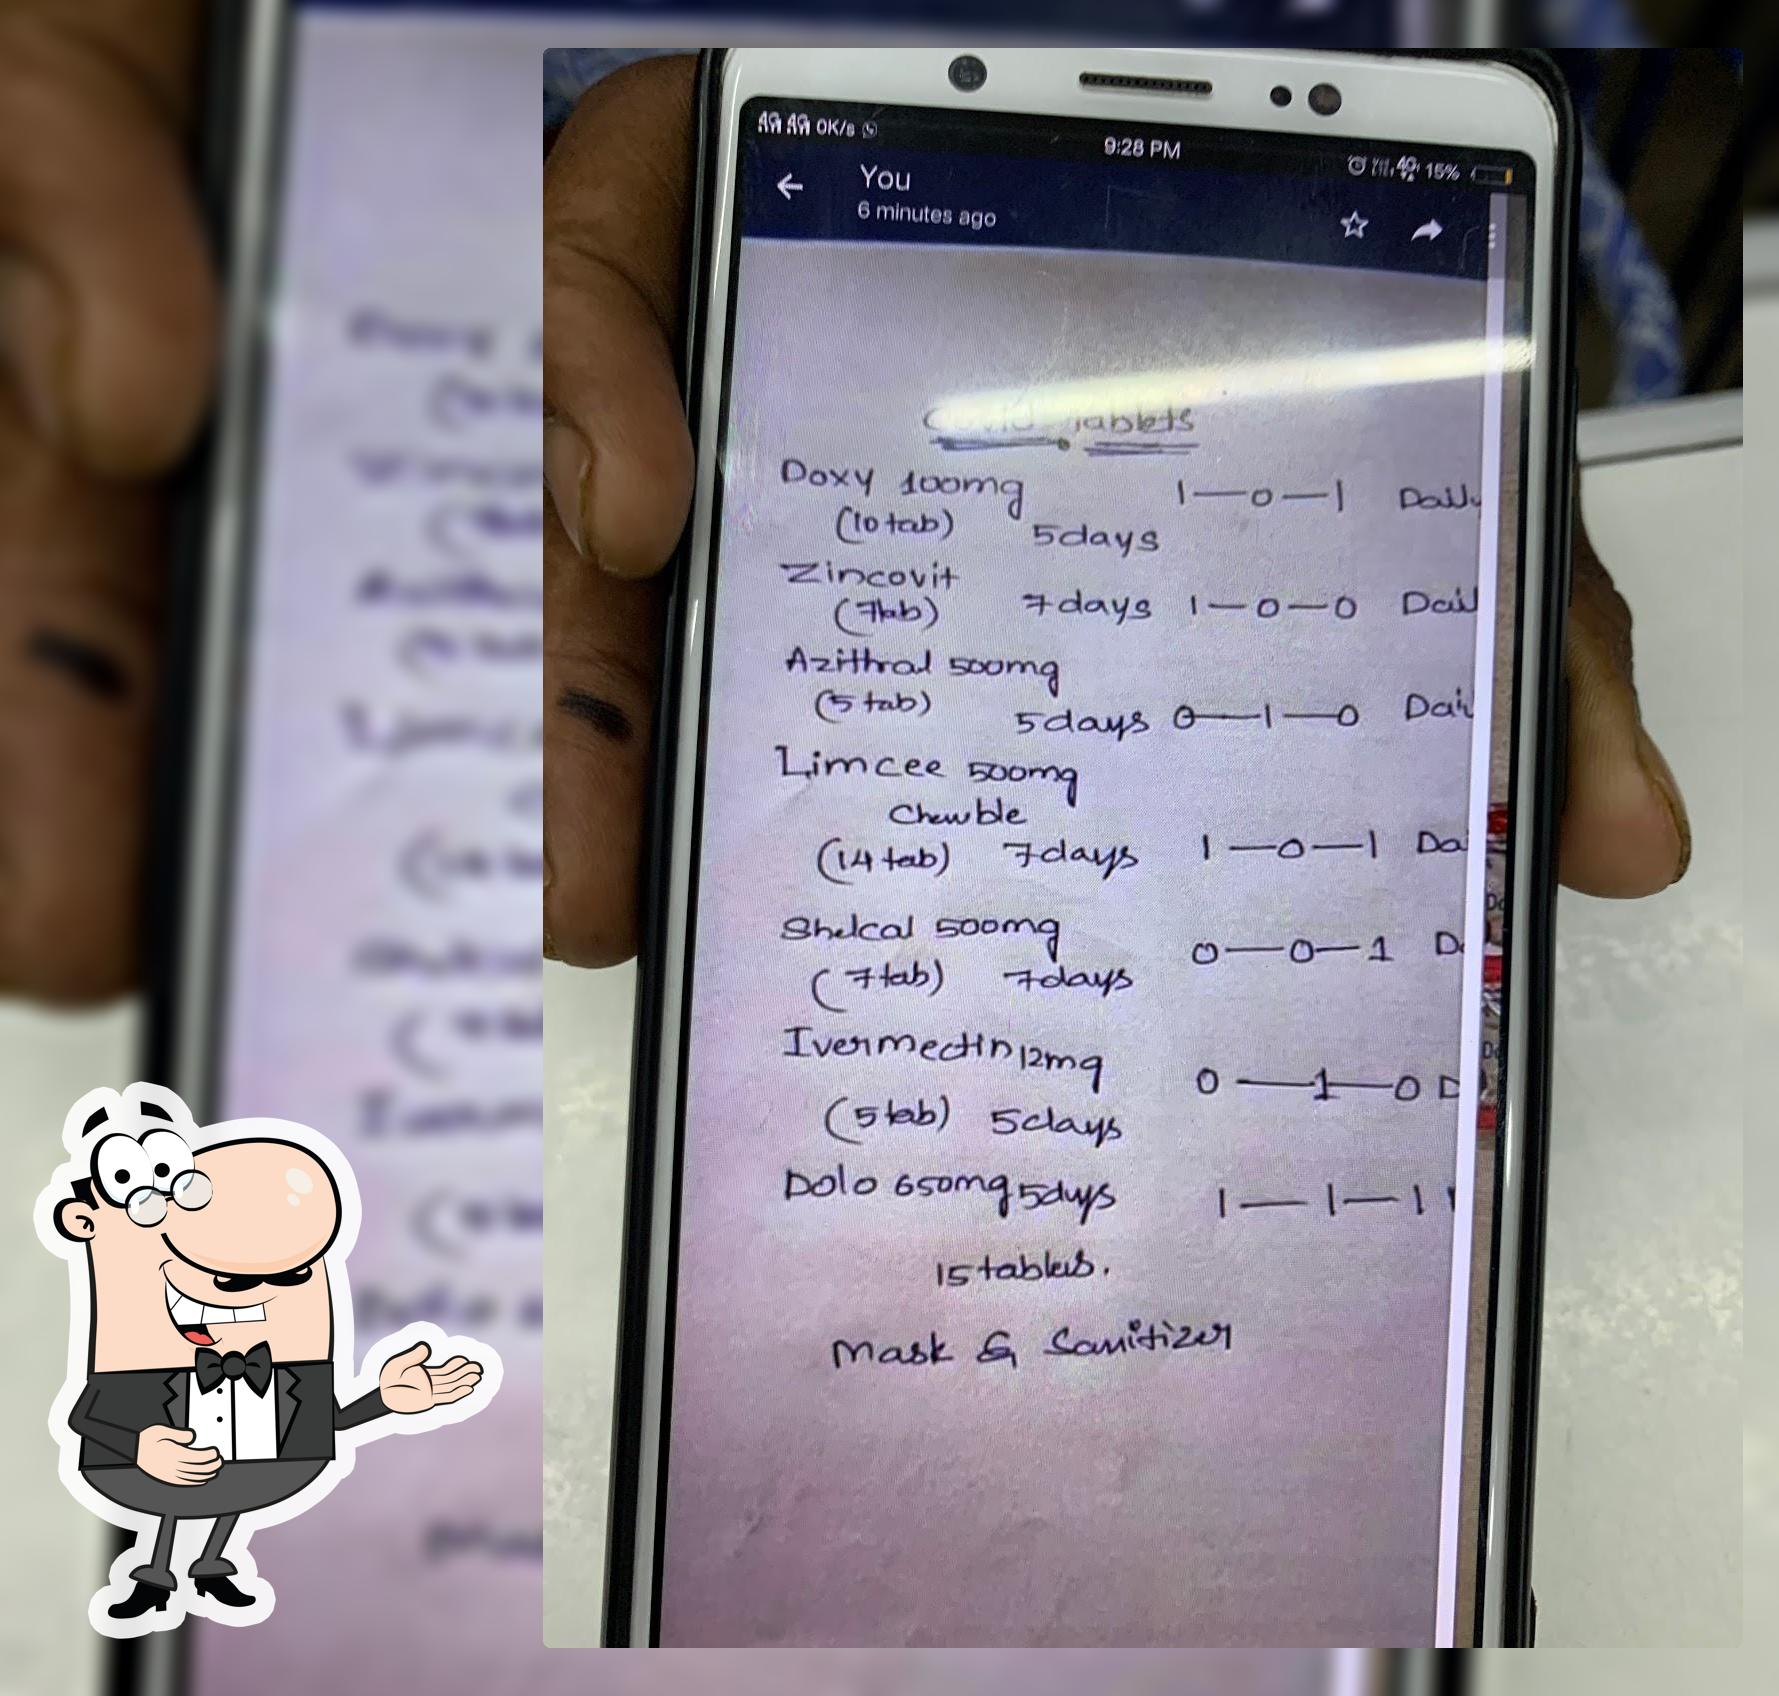 4G 4G 0K/s
9:28 PM
4G 15%
You
6 minutes ago
Covid Tablets
Doxy 100mg 1—0—1 Daily
(10 tab) 5days
Zincovit
(7tab) 7days 1—0—0 Dail
Azithral 500mg
(5 tab) 5days 0—1—0 Dai
Limcee 500mg
Chewble
(14 tab) 7days 1—0—1 Da
Shelcal 500mg 0—0—1 D
(7 tab) 7days
Ivermectin 12mg 0—1—0 D
(5 tab) 5days
Dolo 650mg 5days 1—1—1
15 tablets.
Mask & Sanitizer